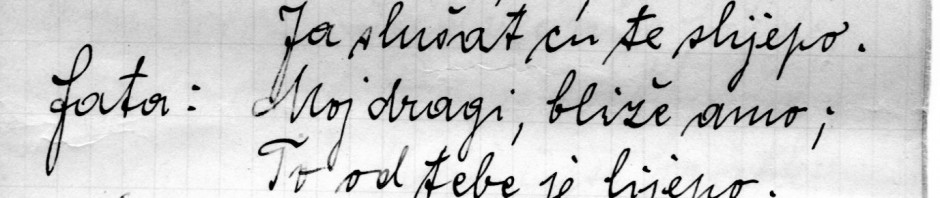 Ja slušat ću te slijepo.
Fata: Moj dragi, bliže amo;
To od tebe je lijepo.